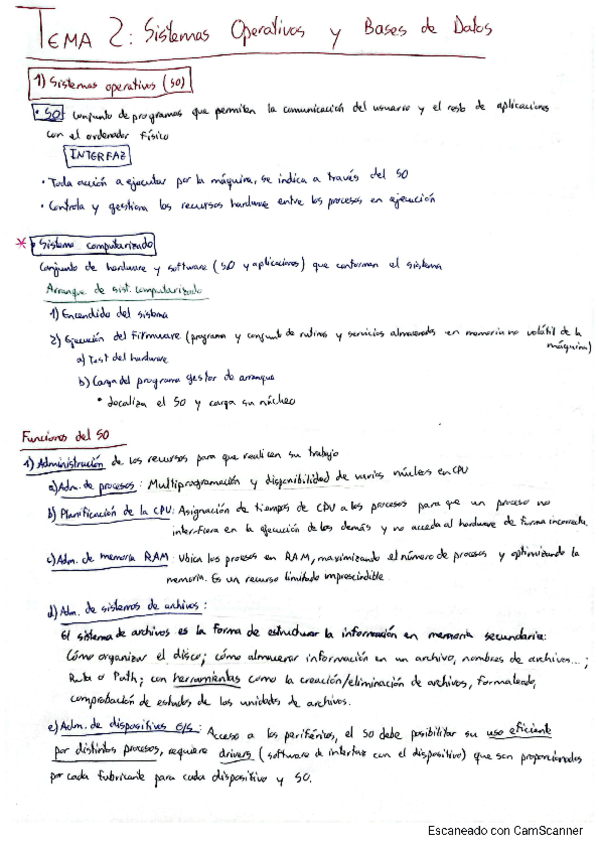 TEMA 2: Sistemas Operativos y Bases de Datos
1) Sistemas operativos (SO)
• SO: Conjunto de programas que permiten la comunicación del usuario y el resto de aplicaciones
con el ordenador físico
INTERFAZ
• Toda acción a ejecutar por la máquina, se indica a través del SO
• Controla y gestiona los recursos hardware entre los procesos en ejecución
* • Sistema computarizado
Conjunto de hardware y software (SO y aplicaciones) que conforman el sistema
Arranque de sist. computarizado
1) Encendido del sistema
2) Ejecución del Firmware (programa y conjunto de rutinas y servicios almacenados en memoria no volátil de la
máquina)
a) Test del hardware
b) Carga del programa gestor de arranque
• Localiza el SO y carga su núcleo
Funciones del SO
1) Administración de los recursos para que realicen su trabajo
a) Adm. de procesos: Multiprogramación y disponibilidad de varios núcleos en CPU
b) Planificación de la CPU: Asignación de tiempos de CPU a los procesos para que un proceso no
interfiera en la ejecución de los demás y no acceda al hardware de forma incorrecta.
c) Adm. de memoria RAM: Ubica los procesos en RAM, maximizando el número de procesos y optimizando la
memoria. Es un recurso limitado imprescindible.
d) Adm. de sistemas de archivos:
El sistema de archivos es la forma de estructurar la información en memoria secundaria:
Cómo organizar el disco; cómo almacenar información en un archivo, nombres de archivos...;
Ruta o Path; con herramientas como la creación/eliminación de archivos, formateado,
comprobación de estados de las unidades de archivos.
e) Adm. de dispositivos E/S: Acceso a los periféricos, el SO debe posibilitar su uso eficiente
por distintos procesos, requiere drivers (software de interfaz con el dispositivo) que son proporcionados
por cada fabricante para cada dispositivo y SO.
Escaneado con CamScanner